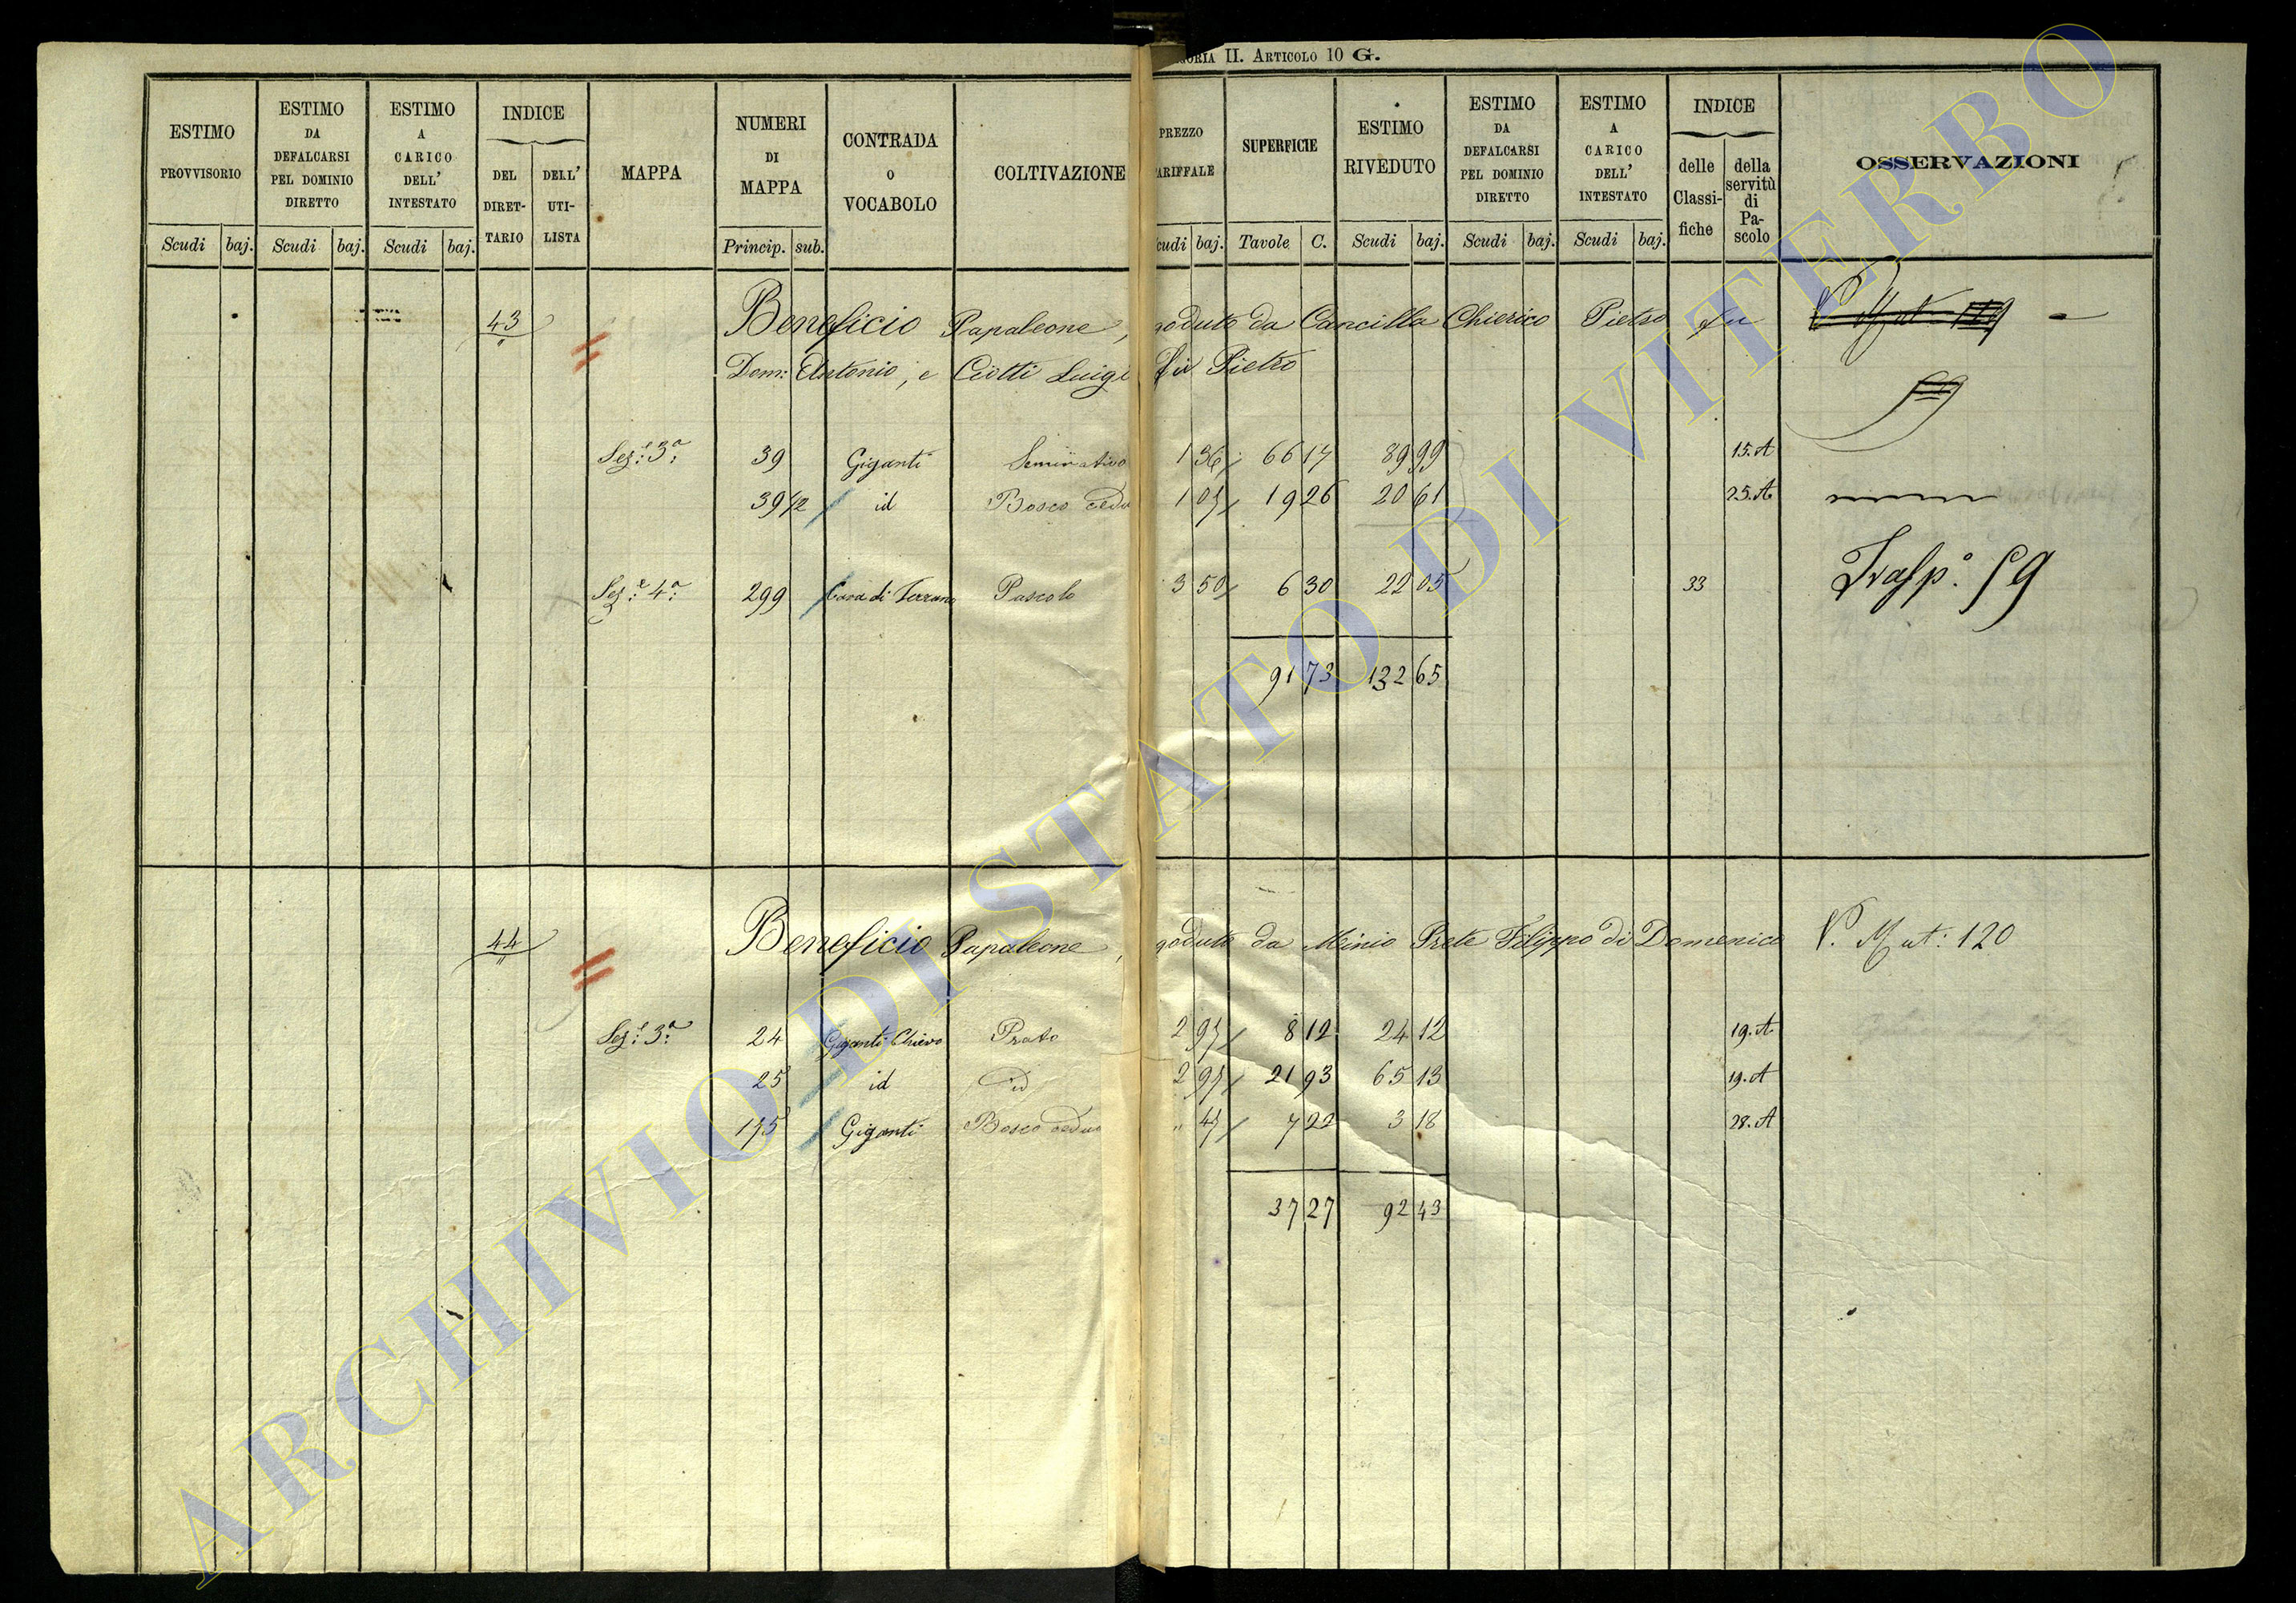 CATEGORIA II. ARTICOLO 10 G.
ESTIMO PROVVISORIO Scudi baj.
ESTIMO DA DEFALCARSI PEL DOMINIO DIRETTO Scudi baj.
ESTIMO A CARICO DELL' INTESTATO Scudi baj.
INDICE DEL DIRETTARIO DELL' UTILISTA
MAPPA
NUMERI DI MAPPA Princip. sub.
CONTRADA O VOCABOLO
COLTIVAZIONE
PREZZO TARIFFALE Scudi baj.
SUPERFICIE Tavole C.
ESTIMO RIVEDUTO Scudi baj.
ESTIMO DA DEFALCARSI PEL DOMINIO DIRETTO Scudi baj.
ESTIMO A CARICO DELL' INTESTATO Scudi baj.
INDICE delle Classifiche della servitù di Pascolo
OSSERVAZIONI
43 Beneficio Papaleone, goduto da Cancilla Chierico Pietro fu V. Mut. 119
Dom: Antonio, e Ciotti Luigi fu Pietro
59
Sez: 3ª 39 Giganti Seminativo 1 36 66 17 89 99 15. A
39 1/2 id Bosco cedu 1 07 19 26 20 61 25. A
Sez: 4ª 299 Cava di Terrano Pascolo 3 50 6 30 22 05 33 Trasp.º 59
91 73 132 65
44 Beneficio Papaleone, goduto da Minio Prete Filippo di Domenico V. Mut: 120
Sez: 3ª 24 Giganti Chievo Prato 2 97 8 12 24 12 19. A
25 id id 2 97 21 93 65 13 19. A
175 Giganti Bosco ceduo " 44 7 22 3 18 28. A
37 27 92 43
ARCHIVIO DI STATO DI VITERBO